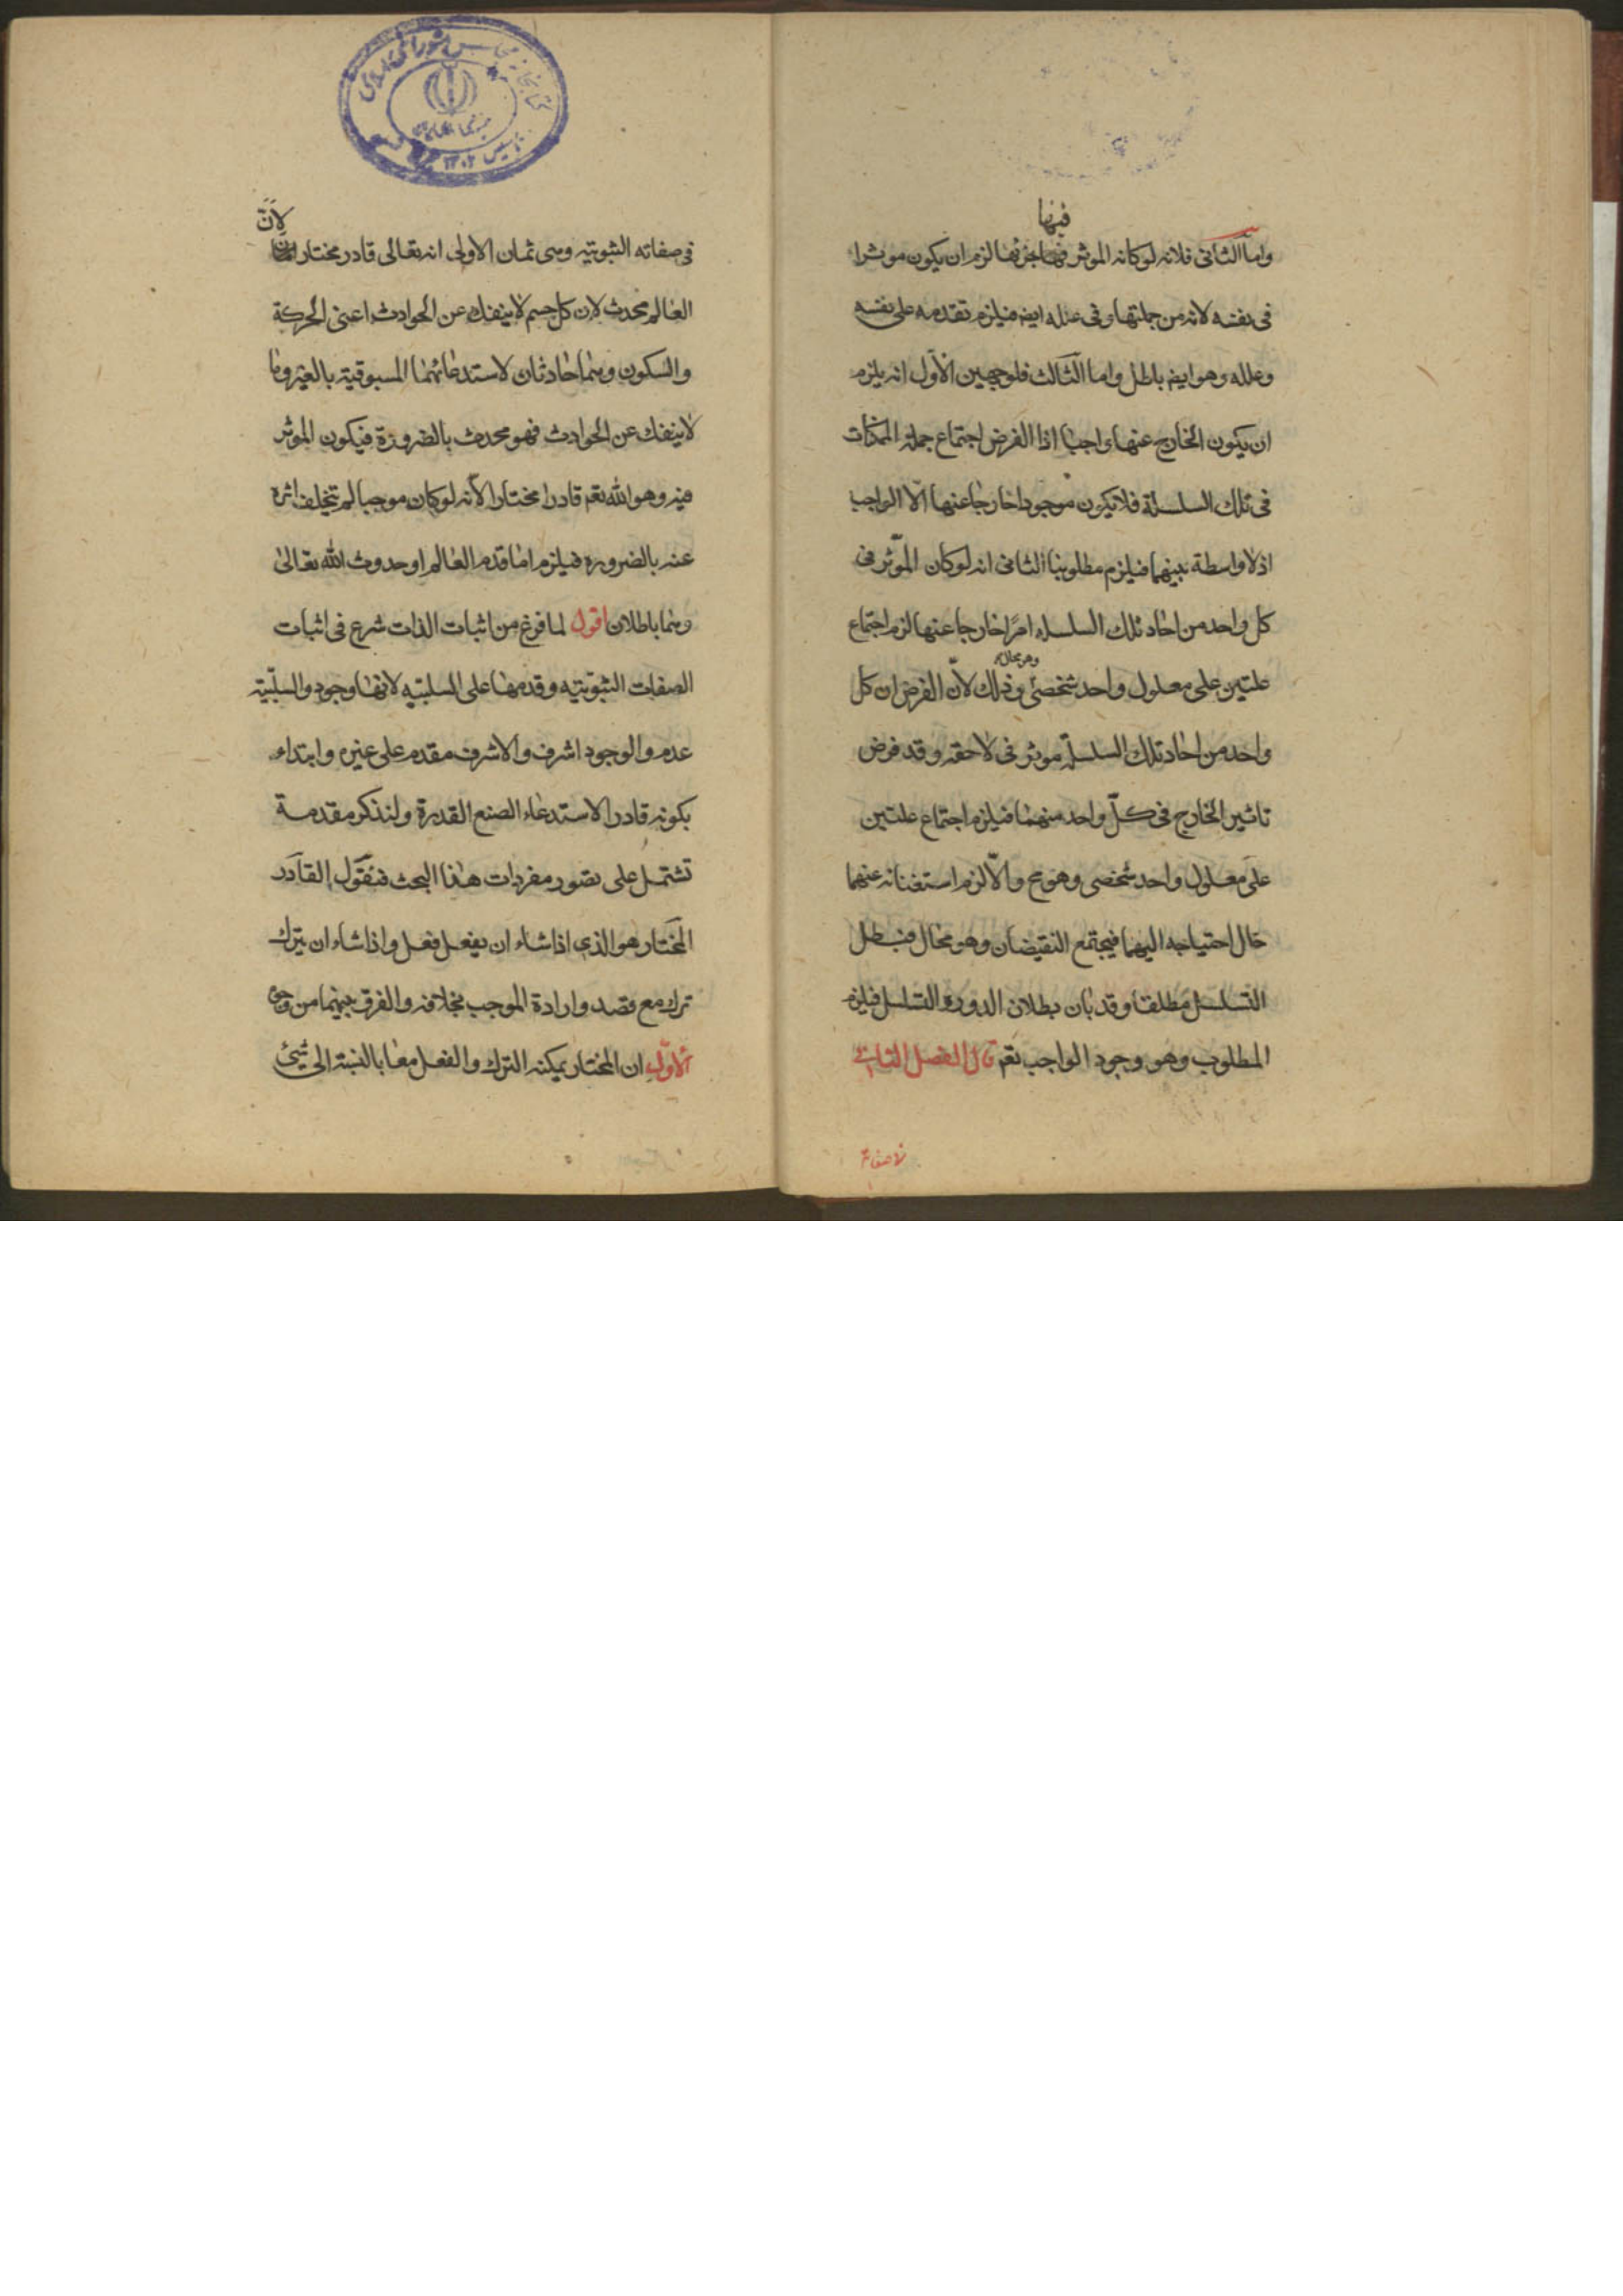 فيها
واما الثانى فلانه لو كانه الموثر فيها جزئها لزم ان يكون موثرا
فى نفسه لانه من جملتها وفى علله ايضا فيلزم تقدمه على نفسه
وعلله وهو ايضا باطل واما الثالث فلوجهين الاول انه يلزم
ان يكون الخارج عنها واجبا اذا الفرض اجتماع جملة الممكنات
فى تلك السلسلة فلا يكون موجودا خارجا عنها الّا الواجب
اذ لا واسطة بينهما فيلزم مطلوبنا الثانى انه لو كان الموّثر فى
كل واحد من احاد تلك السلسله امرًا خارجا عنها لزم اجتماع
وهو محال
علتين على معلول واحد شخصى وذلك لانّ الفرض ان كل
واحد من احاد تلك السلسلة موثر فى لاحقه وقد فرض
تاثير الخارج فى كلّ واحد منهما فيلزم اجتماع علتين
على معلول واحد شخصى وهو مح والّا لزم استغنائه عنهما
حال احتياجه اليهما فيجتمع النقيضان وهو محال فبطل
التسلسل مطلقا وقد بان بطلان الدور والتسلسل فيلزم
المطلوب وهو وجود الواجب تعم قال الفصل الثانى
لانّ
فى صفاته الثبوتيه وهى ثمان الاولى انه تعالى قادر مختار
العالم محدث لان كل جسم لا ينفك عن الحوادث اعنى الحركة
والسكون وهما حادثان لاستدعائهما المسبوقية بالغير وما
لا ينفك عن الحوادث فهو محدث بالضرورة فيكون الموثر
فيه وهو الله تعم قادرا مختارا لانه لو كان موجبا لم يتخلف اثره
عنه بالضروره فيلزم اما قدم العالم او حدوث الله تعالى
وهما باطلان اقول لما فرغ من اثبات الذات شرع فى اثبات
الصفات الثبوتيه وقدمها على السلبيه لانها وجود والسلبيّة
عدم والوجود اشرف والاشرف مقدم على غيره وابتداء
بكونه قادرا لاستدعاء الصنع القدرة ولنذكر مقدمة
تشتمل على تصور مفردات هذا البحث فنقول القادر
المختار هو الذى اذا شاء ان يفعل فعل واذا شاء ان يترك
ترك مع قصد وارادة الموجب بخلافه والفرق بينهما من وجوه
الاوّل ان المختار يمكنه الترك والفعل معا بالنسبة الى شيئ